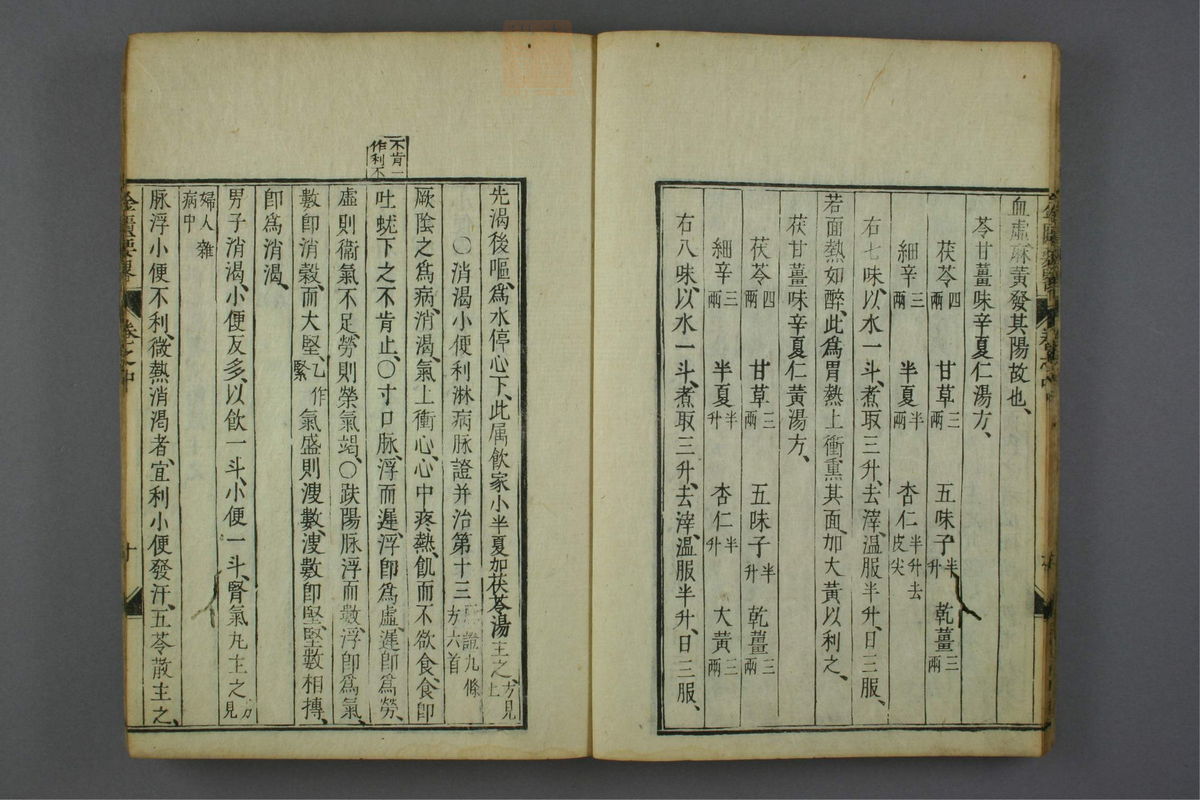 血虛麻黃發其陽故也、
苓甘薑味辛夏仁湯方、
茯苓四兩 甘草三兩 五味子半升 乾薑三兩
細辛三兩 半夏半兩 杏仁半升去皮尖
右七味、以水一斗、煮取三升、去滓、溫服半升、日三服、
若面熱如醉、此爲胃熱上衝熏其面、加大黃以利之、
茯甘薑味辛夏仁黃湯方、
茯苓四兩 甘草三兩 五味子半升 乾薑三兩
細辛三兩 半夏半升 杏仁半升 大黃三兩
右八味、以水一斗、煮取三升、去滓、溫服半升、日三服、
先渴後嘔、爲水停心下、此属飲家小半夏加茯苓湯主之方見上
〇消渴小便利淋病脉證并治第十三證九條方六首
厥陰之爲病、消渴、氣上衝心、心中疼熱、飢而不欲食、食卽
不肯一作利不
吐蚘下之不肯止、〇寸口脉、浮而遲、浮卽爲虛、遲卽爲勞、
虛則衞氣不足、勞則榮氣竭、〇趺陽脉浮而數、浮卽爲氣、
數卽消穀、而大堅、乙作緊氣盛則溲數、溲數卽堅、堅數相摶、
卽爲消渴、
男子消渴、小便反多、以飲一斗、小便一斗、腎氣丸主之、方見
婦人雜病中
脉浮小便不利、微熱消渴者、宜利小便發汗、五苓散主之、
金匱要畧 卷之中 十